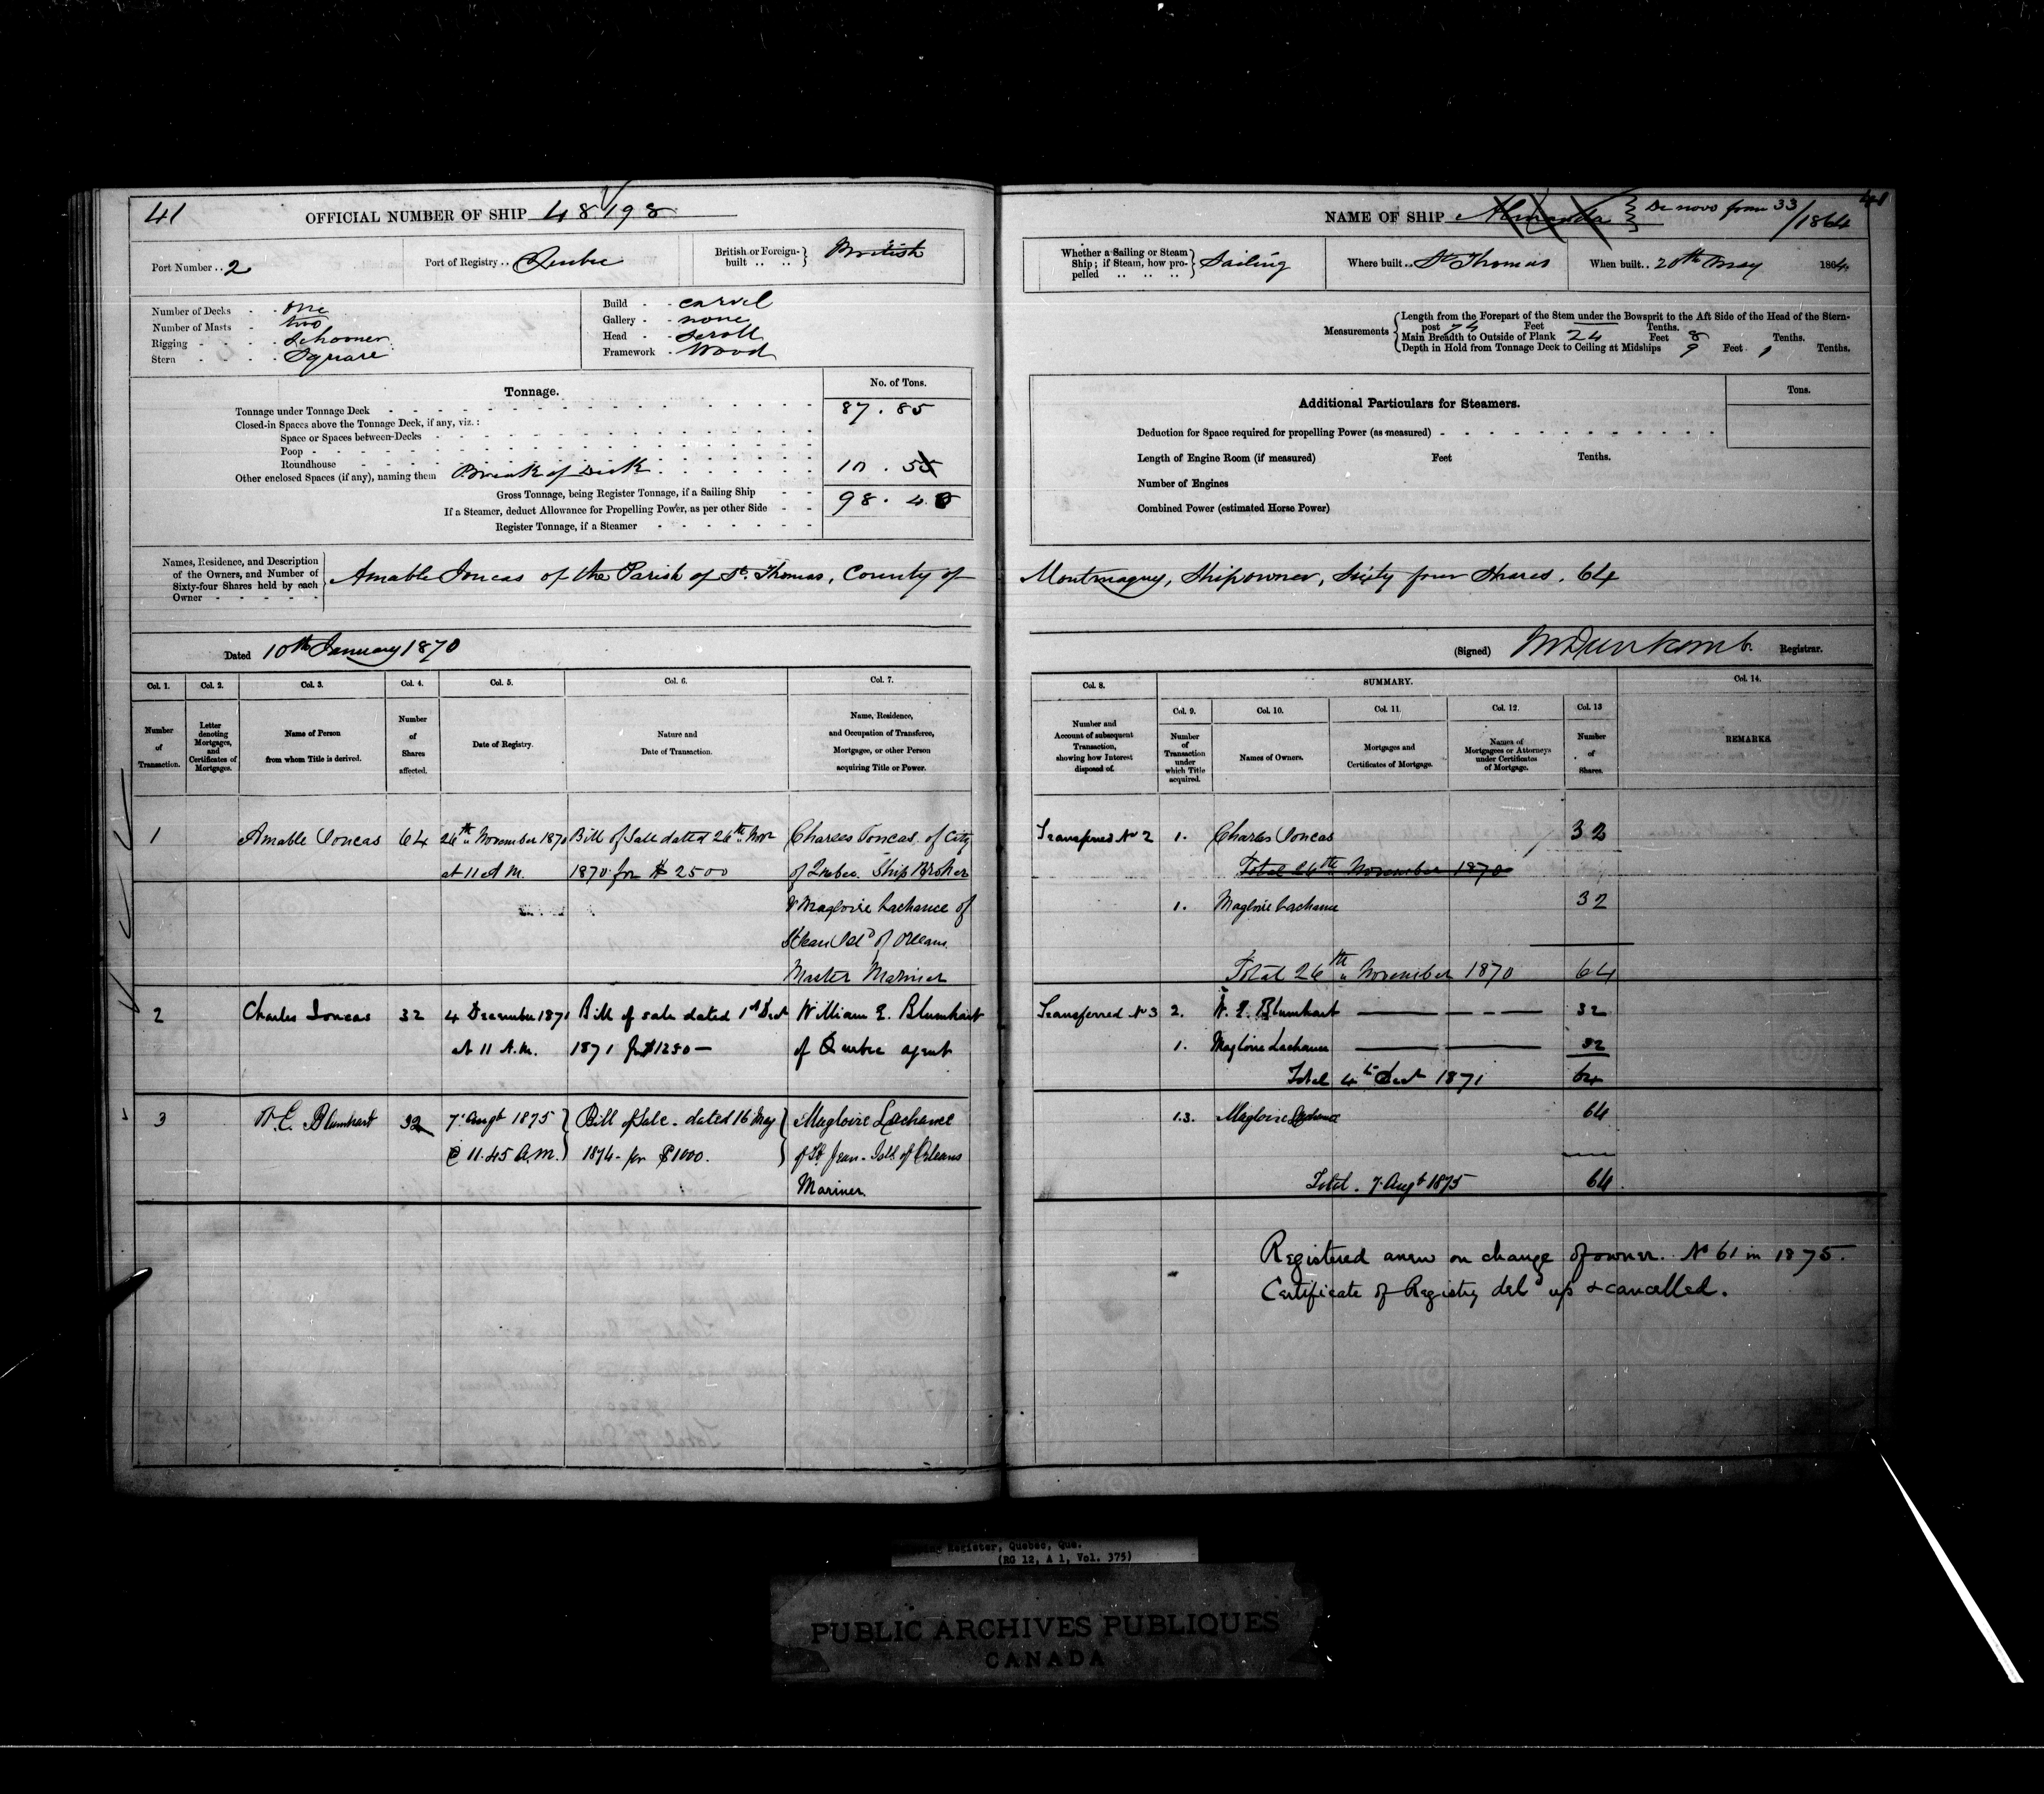 41
OFFICIAL NUMBER OF SHIP 48198
Port Number .. 2
Port of Registry .. Quebec
British or Foreign-built .. .. } British
Number of Decks - one
Number of Masts - two
Rigging - - - Schooner
Stern - - - Square
Build - - carvel
Gallery - - none
Head - - scroll
Framework - Wood
Tonnage.
No. of Tons.
Tonnage under Tonnage Deck 87.85
Closed-in Spaces above the Tonnage Deck, if any, viz.:
Space or Spaces between-Decks
Poop
Roundhouse
Other enclosed Spaces (if any), naming them Break of Deck 10.55
Gross Tonnage, being Register Tonnage, if a Sailing Ship 98.40
If a Steamer, deduct Allowance for Propelling Power, as per other Side
Register Tonnage, if a Steamer
Names, Residence, and Description of the Owners, and Number of Sixty-four Shares held by each Owner
Amable Joncas of the Parish of St. Thomas, County of
Dated 10th January 1870
Col. 1. Col. 2. Col. 3. Col. 4. Col. 5. Col. 6. Col. 7.
Number of Transaction.
Letter denoting Mortgages, and Certificates of Mortgages.
Name of Person from whom Title is derived.
Number of Shares affected.
Date of Registry.
Nature and Date of Transaction.
Name, Residence, and Occupation of Transferee, Mortgagee, or other Person acquiring Title or Power.
1 Amable Joncas 64 26th November 1870 Bill of Sale dated 26th Novr Charles Joncas of City
at 11 A.M. 1870 for $2500 of Quebec Ship Broker
& Magloire Lachance of
St Jean Isld of Orleans
Master Mariner
2 Charles Joncas 32 4 December 1871 Bill of sale dated 1st Dect William E. Blumhart
at 11 A.M. 1871 for $1250 — of Quebec agent
3 W. E. Blumhart 32 7 Augt 1875 Bill of Sale - dated 16 May Magloire Lachance
@ 11.45 A.M. 1874 - for $1000. of St Jean - Isld. of Orleans
Mariner
41
NAME OF SHIP Almanda } De novo from 33/1864
Whether a Sailing or Steam Ship; if Steam, how propelled } Sailing
Where built .. St Thomas
When built .. 20th May 1864
Measurements
Length from the Forepart of the Stem under the Bowsprit to the Aft Side of the Head of the Stern-
post 74 Feet — Tenths.
Main Breadth to Outside of Plank 24 Feet 8 Tenths.
Depth in Hold from Tonnage Deck to Ceiling at Midships 9 Feet 1 Tenths.
Additional Particulars for Steamers.
Tons.
Deduction for Space required for propelling Power (as measured)
Length of Engine Room (if measured) Feet Tenths.
Number of Engines
Combined Power (estimated Horse Power)
Montmagny, Shipowner, Sixty four Shares. 64
(Signed) Registrar.
Col. 8. SUMMARY. Col. 14.
Col. 9. Col. 10. Col. 11. Col. 12. Col. 13
Number and Account of subsequent Transaction, showing how Interest disposed of.
Number of Transaction under which Title acquired.
Names of Owners.
Mortgages and Certificates of Mortgage.
Names of Mortgagees or Attorneys under Certificates of Mortgage.
Number of Shares.
REMARKS.
Transferred No 2 1. Charles Joncas 32
Total 26th November 1870
1. Magloire Lachance 32
Total 26th November 1870 64
Transferred No 3 2. W. E. Blumhart 32
1. Magloire Lachance 32
Total 4th Dect 1871 64
1.3. Magloire Lachance 64
Total. 7 Augt 1875 64
Registered anew on change of owner. No 61 in 1875.
Certificate of Registry deld up & cancelled.
Register, Quebec, Que.
(RG 12, A 1, Vol. 375)
PUBLIC ARCHIVES PUBLIQUES
CANADA